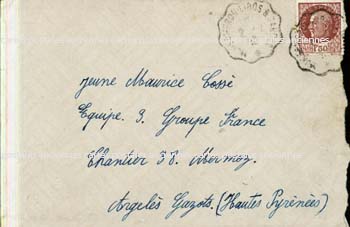 jeune Maurice Cossé
Equipe 3. Groupe France
Chantier 38. Mermoz.
Argelès Gazots. (Hautes Pyrénées)